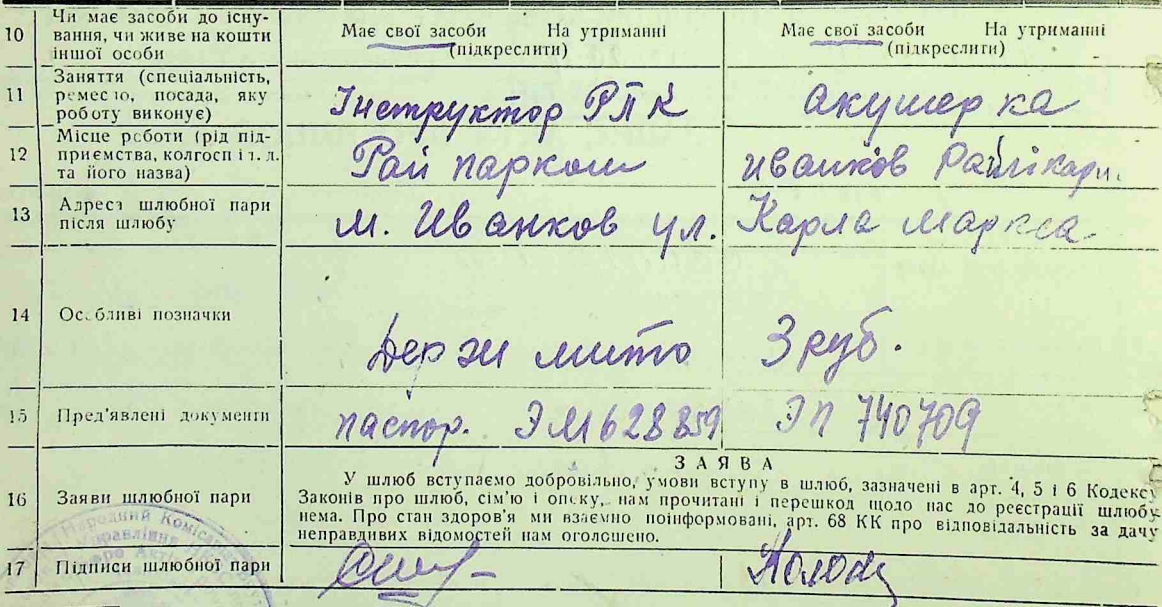 10 Чи має засоби до існу-
вання, чи живе на кошти
іншої особи
Має свої засоби На утриманні
(підкреслити)
Має свої засоби На утриманні
(підкреслити)
11 Заняття (спеціальність,
ремесло, посада, яку
роботу виконує)
Інструктор РПК
акушерка
12 Місце роботи (рід під-
приємства, колгосп і т. д.
та його назва)
Рай парком
Иванков Райлікарн.
13 Адреса шлюбної пари
після шлюбу
м. Иванков ул. Карла Маркса
14 Особливі позначки
Держ мито 3 руб.
15 Пред'явлені документи
паспор. ЭМ 628859 ЭП 740709
16 Заяви шлюбної пари
ЗАЯВА
У шлюб вступаємо добровільно, умови вступу в шлюб, зазначені в арт. 4, 5 і 6 Кодексу
Законів про шлюб, сім'ю і опіку, нам прочитані і перешкод щодо нас до реєстрації шлюбу
нема. Про стан здоров'я ми взаємно поінформовані, арт. 68 КК про відповідальність за дачу
неправдивих відомостей нам оголошено.
17 Підписи шлюбної пари
Народний Коміс